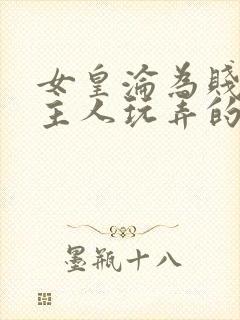 女皇淪為賤
主人玩弄的
墨瓶十八